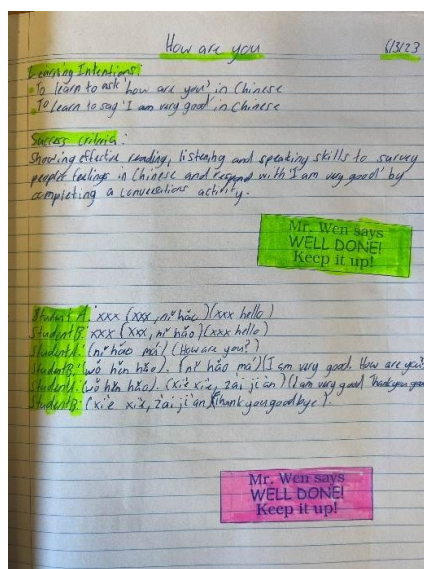 How are you
6/3/23
Learning Intentions:
To learn to ask 'how are you?' in Chinese
To learn to say 'I am very good' in Chinese
Success criteria:
Showing effective reading, listening and speaking skills to survey
people feelings in Chinese and respond with 'I am very good' by
completing a conversations activity.
Mr. Wen says
WELL DONE!
Keep it up!
Student A: xxx (xxx, nǐ hǎo) (xxx hello)
Student B: xxx (xxx, nǐ hǎo) (xxx hello)
Student A: (nǐ hǎo má) (How are you?)
Student B: (wǒ hěn hǎo). (nǐ hǎo má) (I am very good. How are you?
Student A: (wǒ hěn hǎo). (xiè xiè, zài jiàn) (I am very good Thank you good
Student B: (xiè xiè, zài jiàn) (Thank you goodbye).
Mr. Wen says
WELL DONE!
Keep it up!